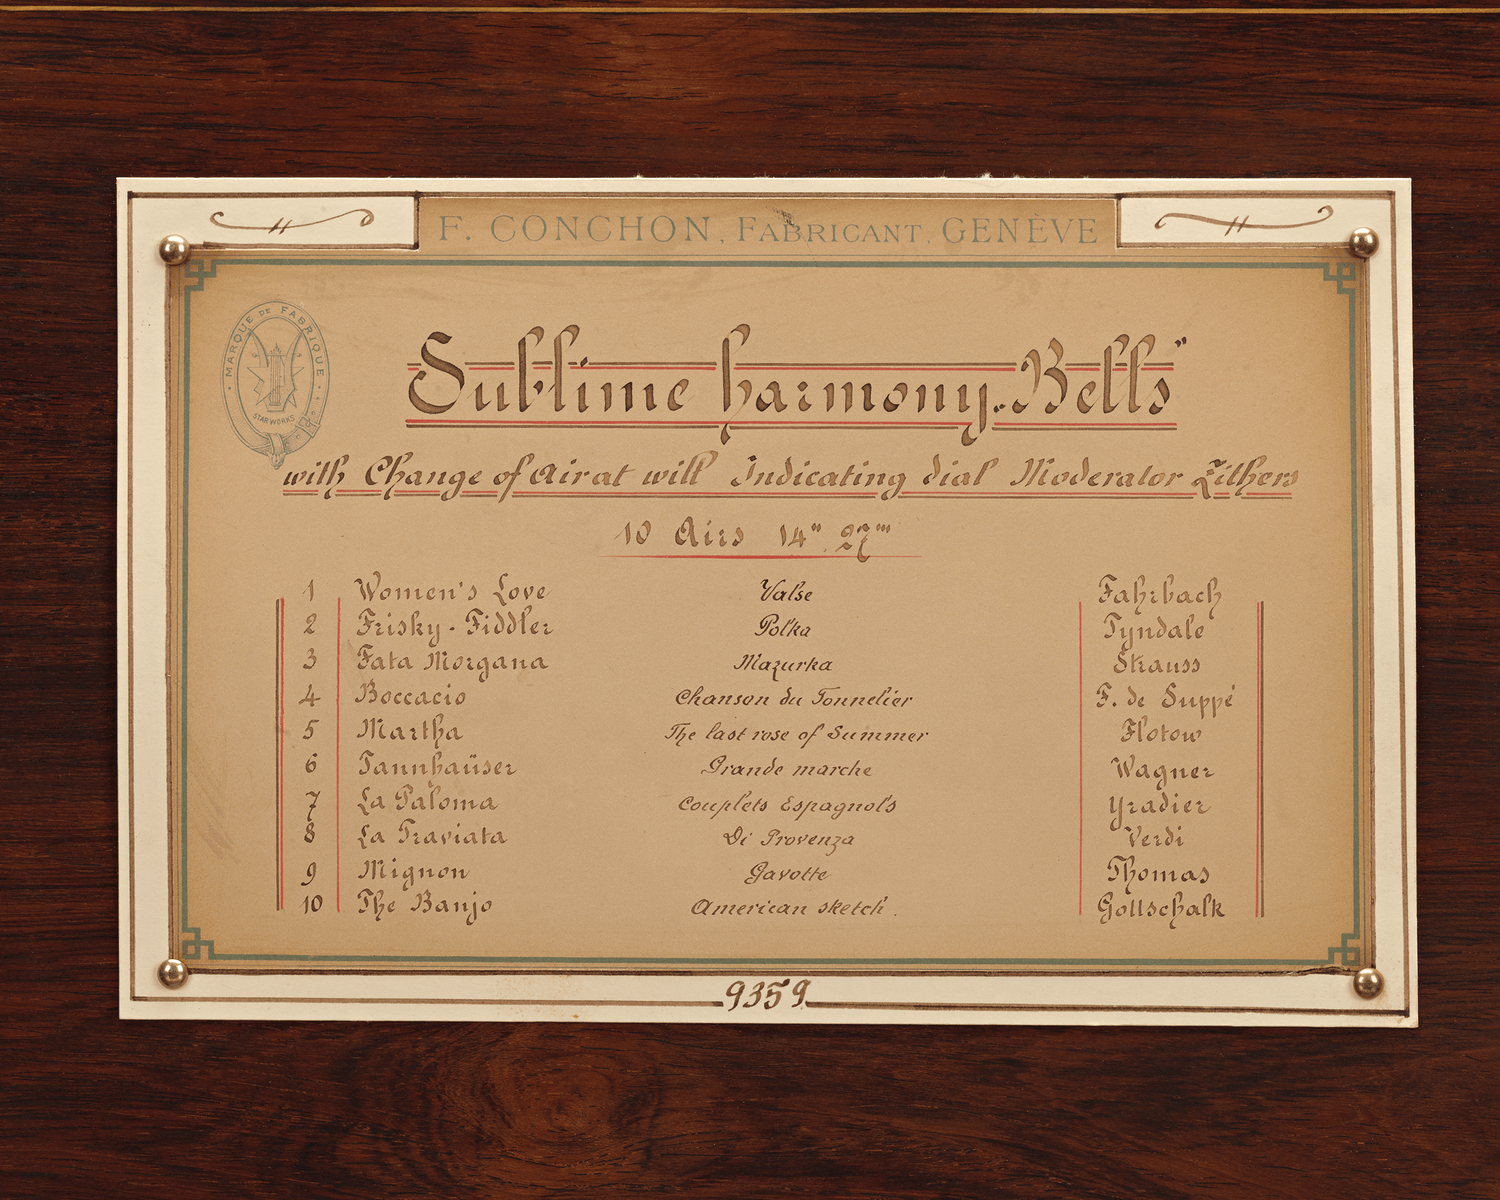 F. CONCHON, FABRICANT, GENÈVE
MARQUE DE FABRIQUE
STAR WORKS
Sublime harmony „Bells"
with Change of Airat will Indicating dial Moderator Zithers
10 Airs 14" 27'''
1 Women's Love Valse Fahrbach
2 Frisky-Fiddler Polka Tyndale
3 Fata Morgana Mazurka Strauss
4 Boccacio Chanson du Tonnelier F. de Suppé
5 Martha The last rose of Summer Flotow
6 Tannhaüser Grande marche Wagner
7 La Paloma Couplets Espagnols Yradier
8 La Traviata Di Provenza Verdi
9 Mignon Gavotte Thomas
10 The Banjo American sketch. Gottschalk
9359